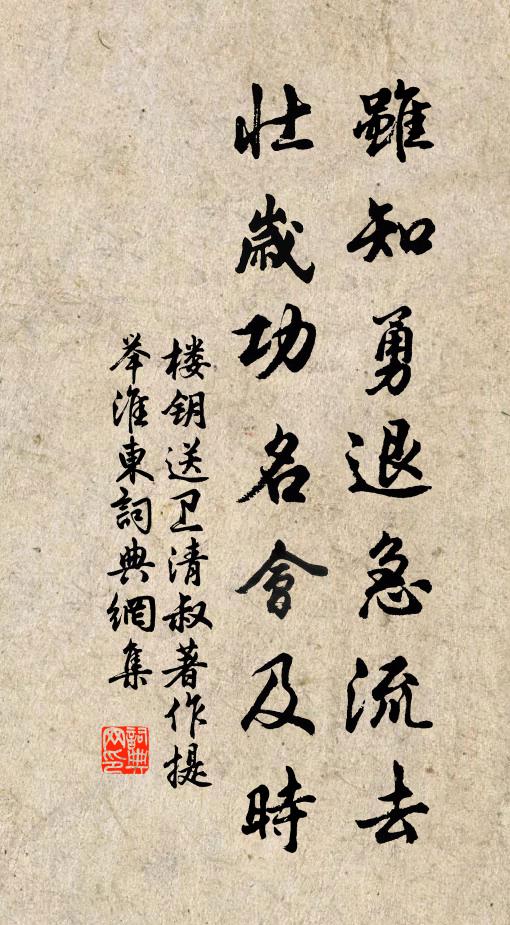 雖知勇退急流去
壯歲功名會及時
楼钥送卫清叔著作提
举淮東詞典網集
詞典网印